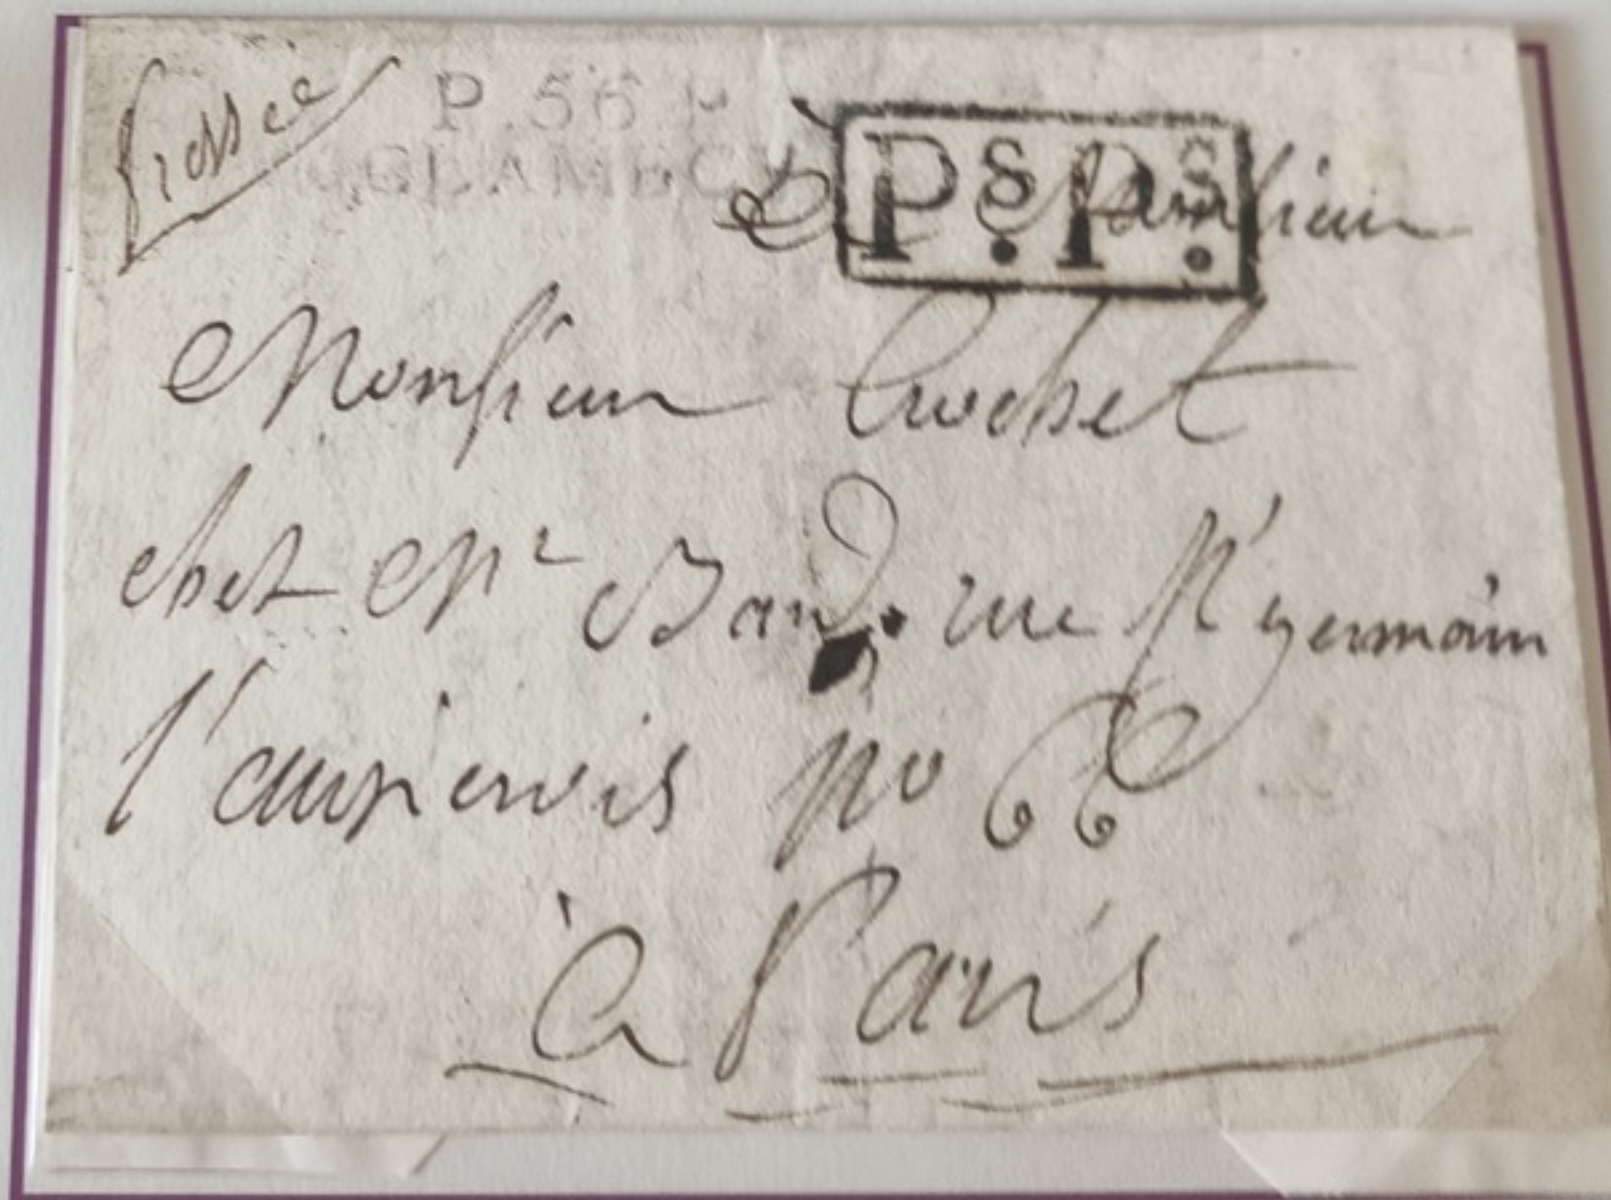 pressée
P.56.P
CLAMECY
P.S P.S
A Monsieur
Monsieur Crochet
chet Mr Baud. rue St germain
l'auxerois no 66
à Paris